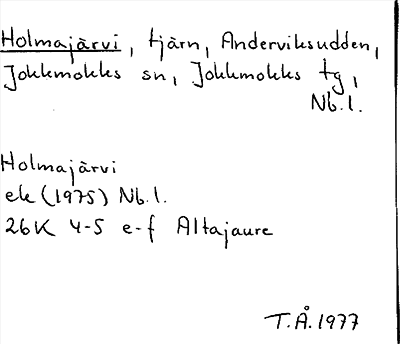 Holmajärvi, tjärn, Anderviksudden,
Jokkmokks sn, Jokkmokks tg,
Nb.l.
Holmajärvi
ek (1975) Nb.l.
26K 4-5 e-f Altajaure
T.Å. 1977